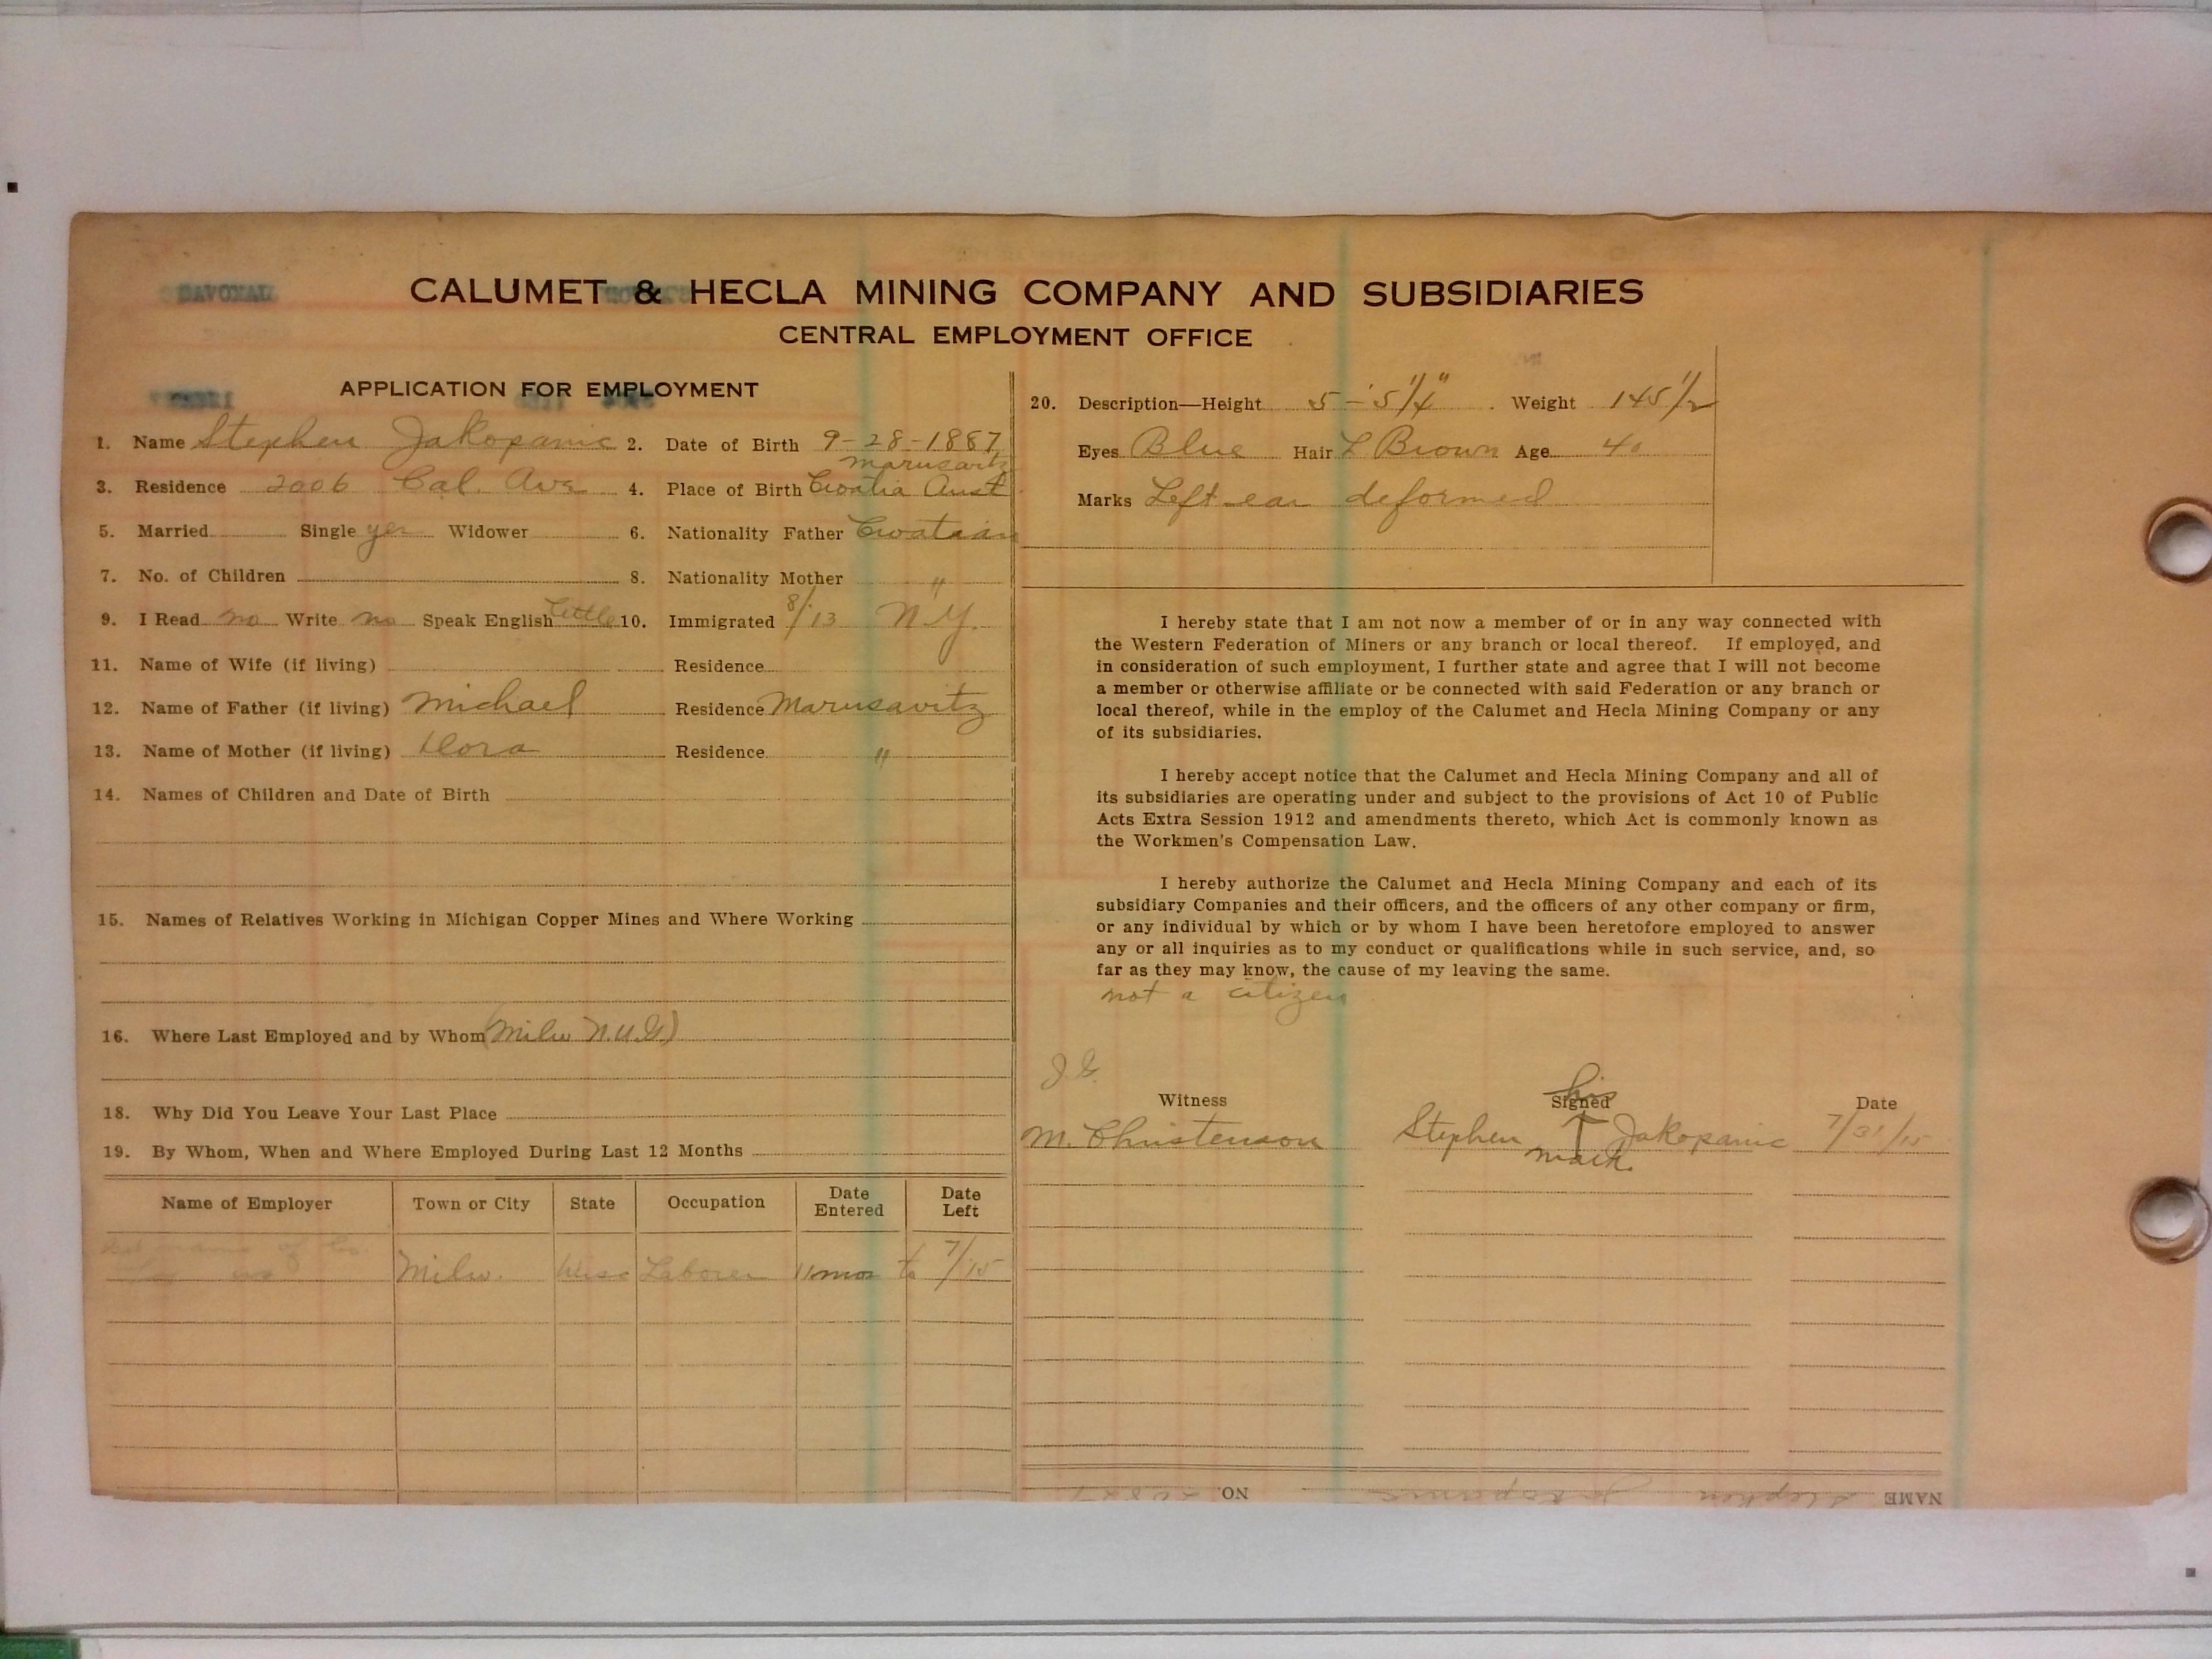 CALUMET & HECLA MINING COMPANY AND SUBSIDIARIES
CENTRAL EMPLOYMENT OFFICE
APPLICATION FOR EMPLOYMENT
1. Name Stephen Jakopanic 2. Date of Birth 9-28-1887
3. Residence 2006 Cal. Ave 4. Place of Birth Croatia Aust
5. Married Single yes Widower 6. Nationality Father Croatian
7. No. of Children 8. Nationality Mother "
9. I Read no Write no Speak English Little 10. Immigrated 8/13 N.Y.
11. Name of Wife (if living) Residence
12. Name of Father (if living) Michael Residence Marusavitz
13. Name of Mother (if living) Dora Residence "
14. Names of Children and Date of Birth
15. Names of Relatives Working in Michigan Copper Mines and Where Working
16. Where Last Employed and by Whom (Milw N.U.G.)
18. Why Did You Leave Your Last Place
19. By Whom, When and Where Employed During Last 12 Months
Name of Employer Town or City State Occupation Date Entered Date Left
Milw. Wisc Laborer 11 mos to 7/15
20. Description—Height 5-'5 1/4" Weight 145 1/2
Eyes Blue Hair L Brown Age 40
Marks Left ear deformed
I hereby state that I am not now a member of or in any way connected with
the Western Federation of Miners or any branch or local thereof. If employed, and
in consideration of such employment, I further state and agree that I will not become
a member or otherwise affiliate or be connected with said Federation or any branch or
local thereof, while in the employ of the Calumet and Hecla Mining Company or any
of its subsidiaries.
I hereby accept notice that the Calumet and Hecla Mining Company and all of
its subsidiaries are operating under and subject to the provisions of Act 10 of Public
Acts Extra Session 1912 and amendments thereto, which Act is commonly known as
the Workmen's Compensation Law.
I hereby authorize the Calumet and Hecla Mining Company and each of its
subsidiary Companies and their officers, and the officers of any other company or firm,
or any individual by which or by whom I have been heretofore employed to answer
any or all inquiries as to my conduct or qualifications while in such service, and, so
far as they may know, the cause of my leaving the same.
not a citizen
J.G.
his
Witness Signed Date
M. Christenson Stephen Jakopanic 7/31/15
mark.
NAME Stephen Jakopanic NO.